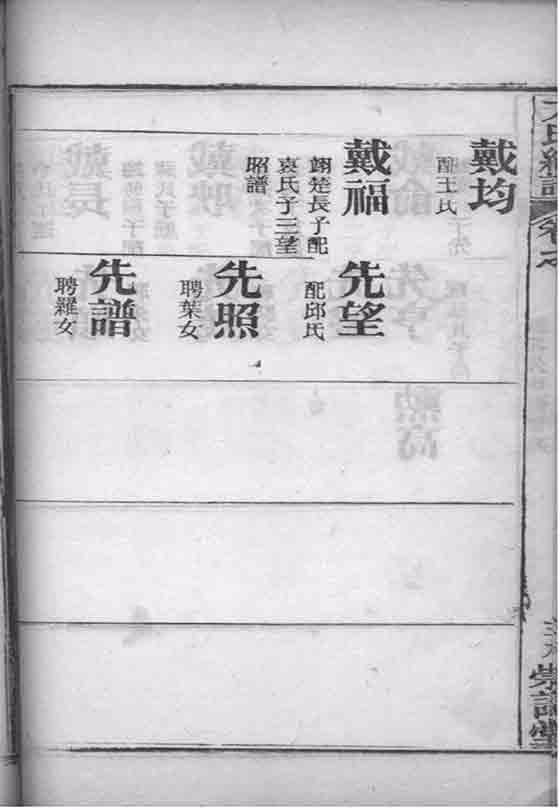 戴均
配王氏
戴福
翊楚長子配
袁氏子三望
昭譜
先望
配邱氏
先照
聘葉女
先譜
聘羅女